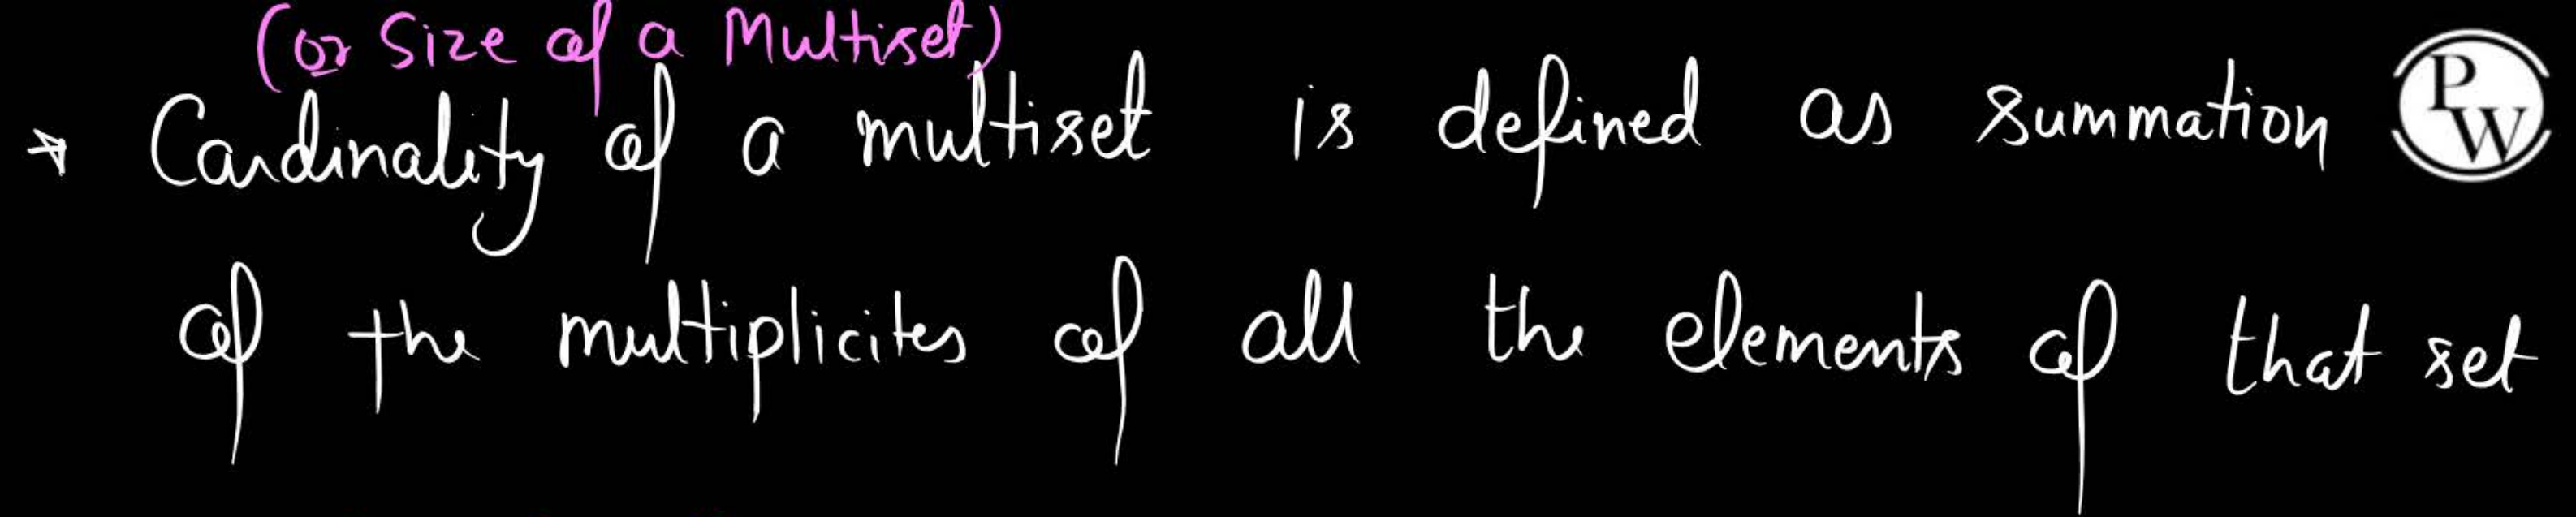 (or Size of a Multiset)
* Cardinality of a multiset is defined as summation
of the multiplicites of all the elements of that set
PW